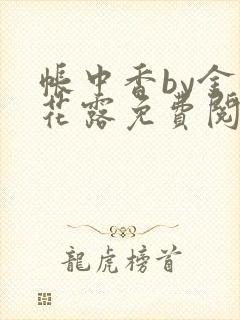 帳中香by金
花露免費閱
龍虎榜首